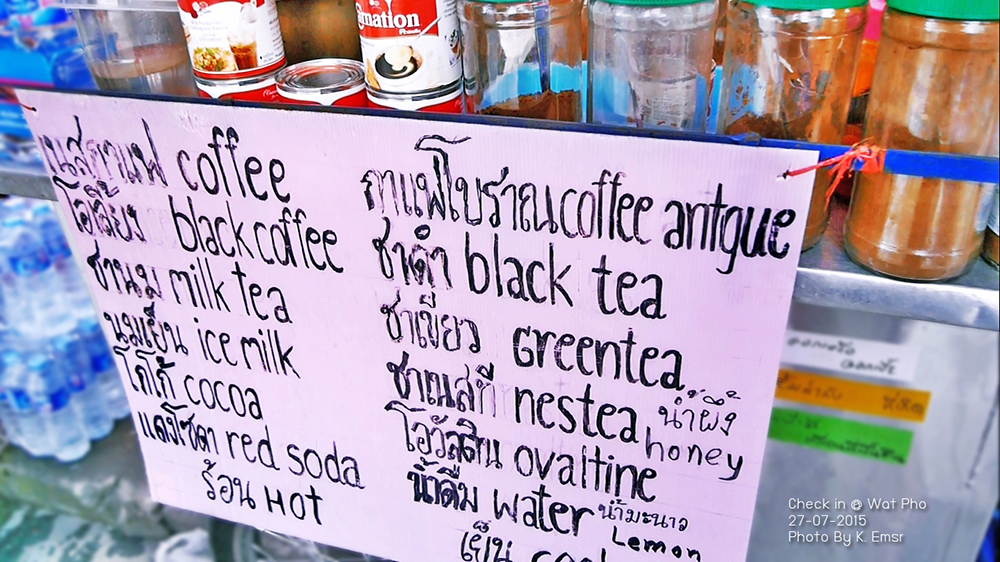 rnation
เนสกาแฟ coffee
โอเลี้ยง black coffee
ชานม milk tea
นมเย็น ice milk
โกโก้ cocoa
แดงโซดา red soda
ร้อน HOT
กาแฟโบราณ coffee antque
ชาดำ black tea
ชาเขียว Greentea
ชาเนสที nestea
น้ำผึ้ง
honey
โอวัลติน ovaltine
น้ำดื่ม water
น้ำมะนาว
Lemon
เย็น
Check in @ Wat Pho
27-07-2015
Photo By K. Emsr